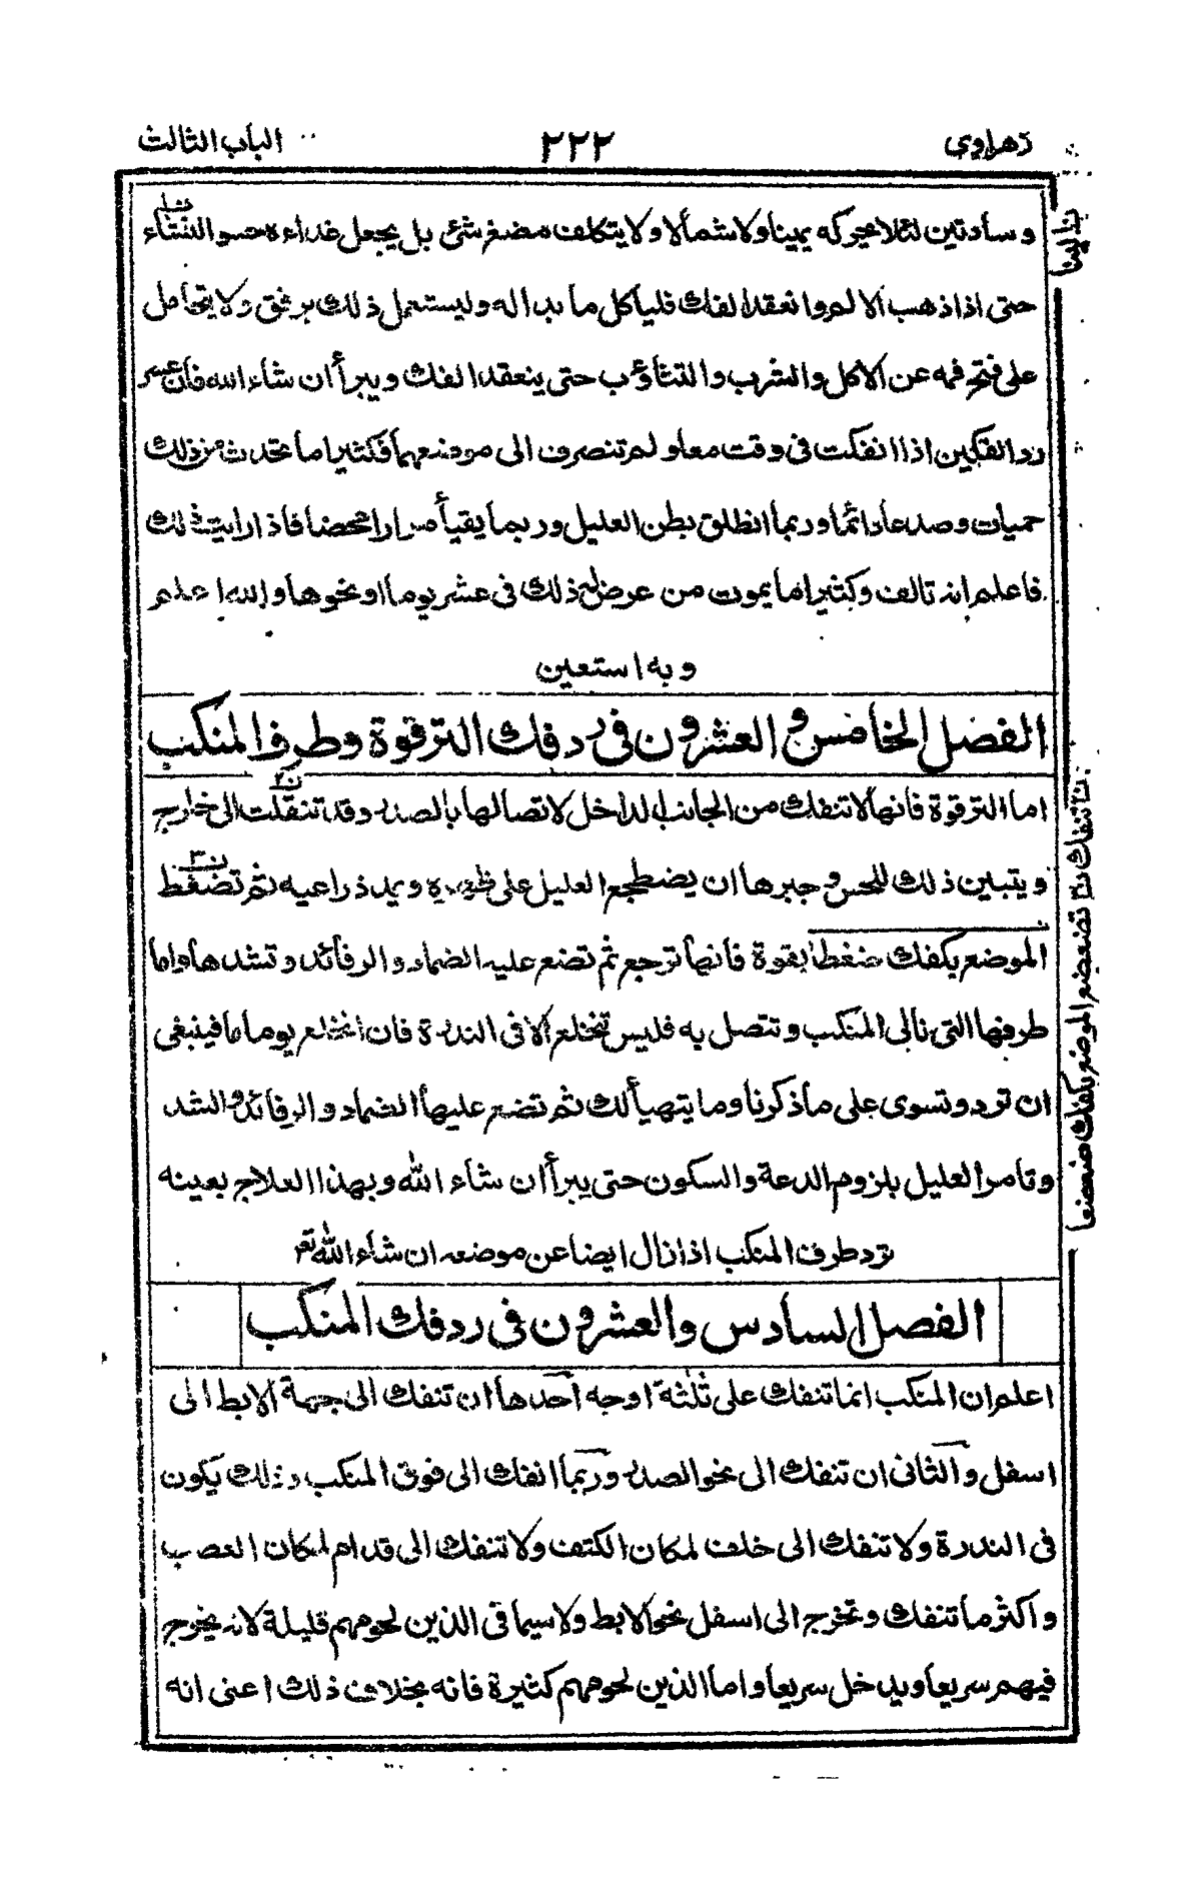 زهراوي ٢٢٢ الباب الثالث
وسادتين لئلا يحركه يمينا ولا شمالا ولا يتكلف مضغ شئ بل يجعل غذاءه حسو النشاء
حتى اذا ذهب الالم وانعقد الفك فلياكل ما بدا له وليستعمل ذلك برفق ولا يتحامل
على فتح فمه عن الاكل والشرب والتثاؤب حتى ينعقد الفك ويبرأ ان شاء الله فان عسر
رد الفكين اذا انفكت فى وقت معا ولم تنصرف الى موضعهما فكثيرا ما تحدث من ذلك
حميات وصداعا دائما وربما انطلق بطن العليل وربما يقيأ مرارا محضا فاذا رايت ذلك
فاعلم انه تالف وكثيرا ما يموت من عرض له ذلك فى عشر يوما او نحوها والله اعلم
وبه استعين
الفصل الخامس والعشرون فى رد فك الترقوة وطرف المنكب
اما الترقوة فانها لا تنفك من الجانب الداخل لاتصالها بالصدر وقد تنقلت الى خارج
ويتبين ذلك للحس وجبرها ان يضطجع العليل على ظهره ويمد ذراعيه ثم تضغط
الموضع بكفك ضغطا بقوة فانها ترجع ثم تضع عليه الضماد والرفائد وتشدها واما
طرفها التى تالى المنكب وتتصل به فليس تنخلع الا فى الندرة فان انخلع يوما ما فينبغى
ان ترد وتسوى على ما ذكرنا وما يتهيأ لك ثم تضع عليها الضماد والرفائد والشد
وتامر العليل بلزوم الدعة والسكون حتى يبرأ ان شاء الله وبهذا العلاج بعينه
ترد طرف المنكب اذا زال ايضا عن موضعه ان شاء الله تع
الفصل السادس والعشرون فى رد فك المنكب
اعلم ان المنكب انما تنفك على ثلثة اوجه احدها ان تنفك الى جهة الابط الى
اسفل والثانى ان تنفك الى نحو الصدر وربما انفك الى فوق المنكب وذلك يكون
فى الندرة ولا تنفك الى خلف لمكان الكتف ولا تنفك الى قدام لمكان العصب
واكثر ما تنفك وتخرج الى اسفل نحو الابط ولا سيما فى الذين لحومهم قليلة لانه يخرج
فيهم سريعا ويدخل سريعا واما الذين لحومهم كثيرة فانه بخلاف ذلك اعنى انه
تنفك
تضعضع الموضع بكفك ضعضعا